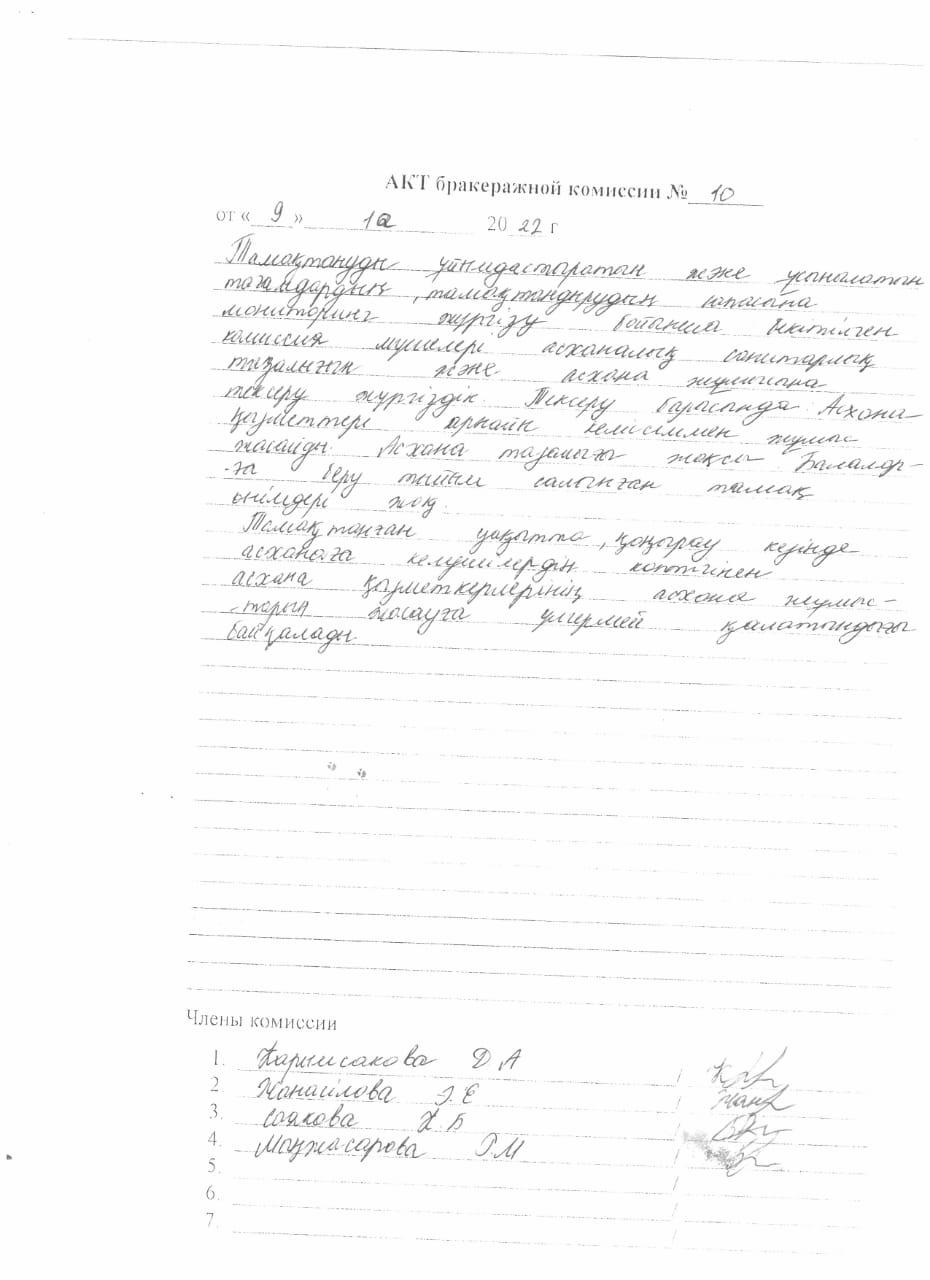 АКТ бракеражной комиссии № 10
от « 9 » 12 2022 г
Тамақтануды ұйымдастыратын және ұсынылатын
тағамдардың, тамақтандырудың сапасына
мониторинг жүргізу бойынша бекітілген
комиссия мүшелері асханалық санитарлық
тазалығын және асхана жұмысына
тексеру жүргіздік. Тексеру барысында Асхана
қызметтері арнайы келісіммен жұмыс
жасайды. Асхана тазалығы жақсы. Балалар-
-ға беру тыйым салынған тамақ
өнімдері жоқ.
Тамақтанған уақытта, қоңырау кезінде
асханаға келушілердің көптігінен
асхана қызметкерлерінің асхана жұмыс-
-тарын жасауға үлгермей қалатындығы
байқалады.
Члены комиссии
1. Карымсакова Д А
2. Жанайлова Э. Е
3. Соякова Х. Б
4. Маңжасарова Г. М
5.
6.
7.